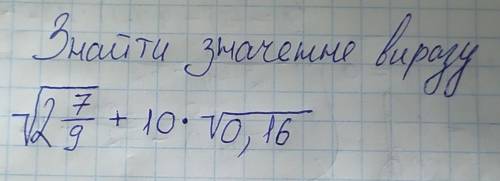 Знайти значенне виразу
√2 7/9 + 10 · √0,16